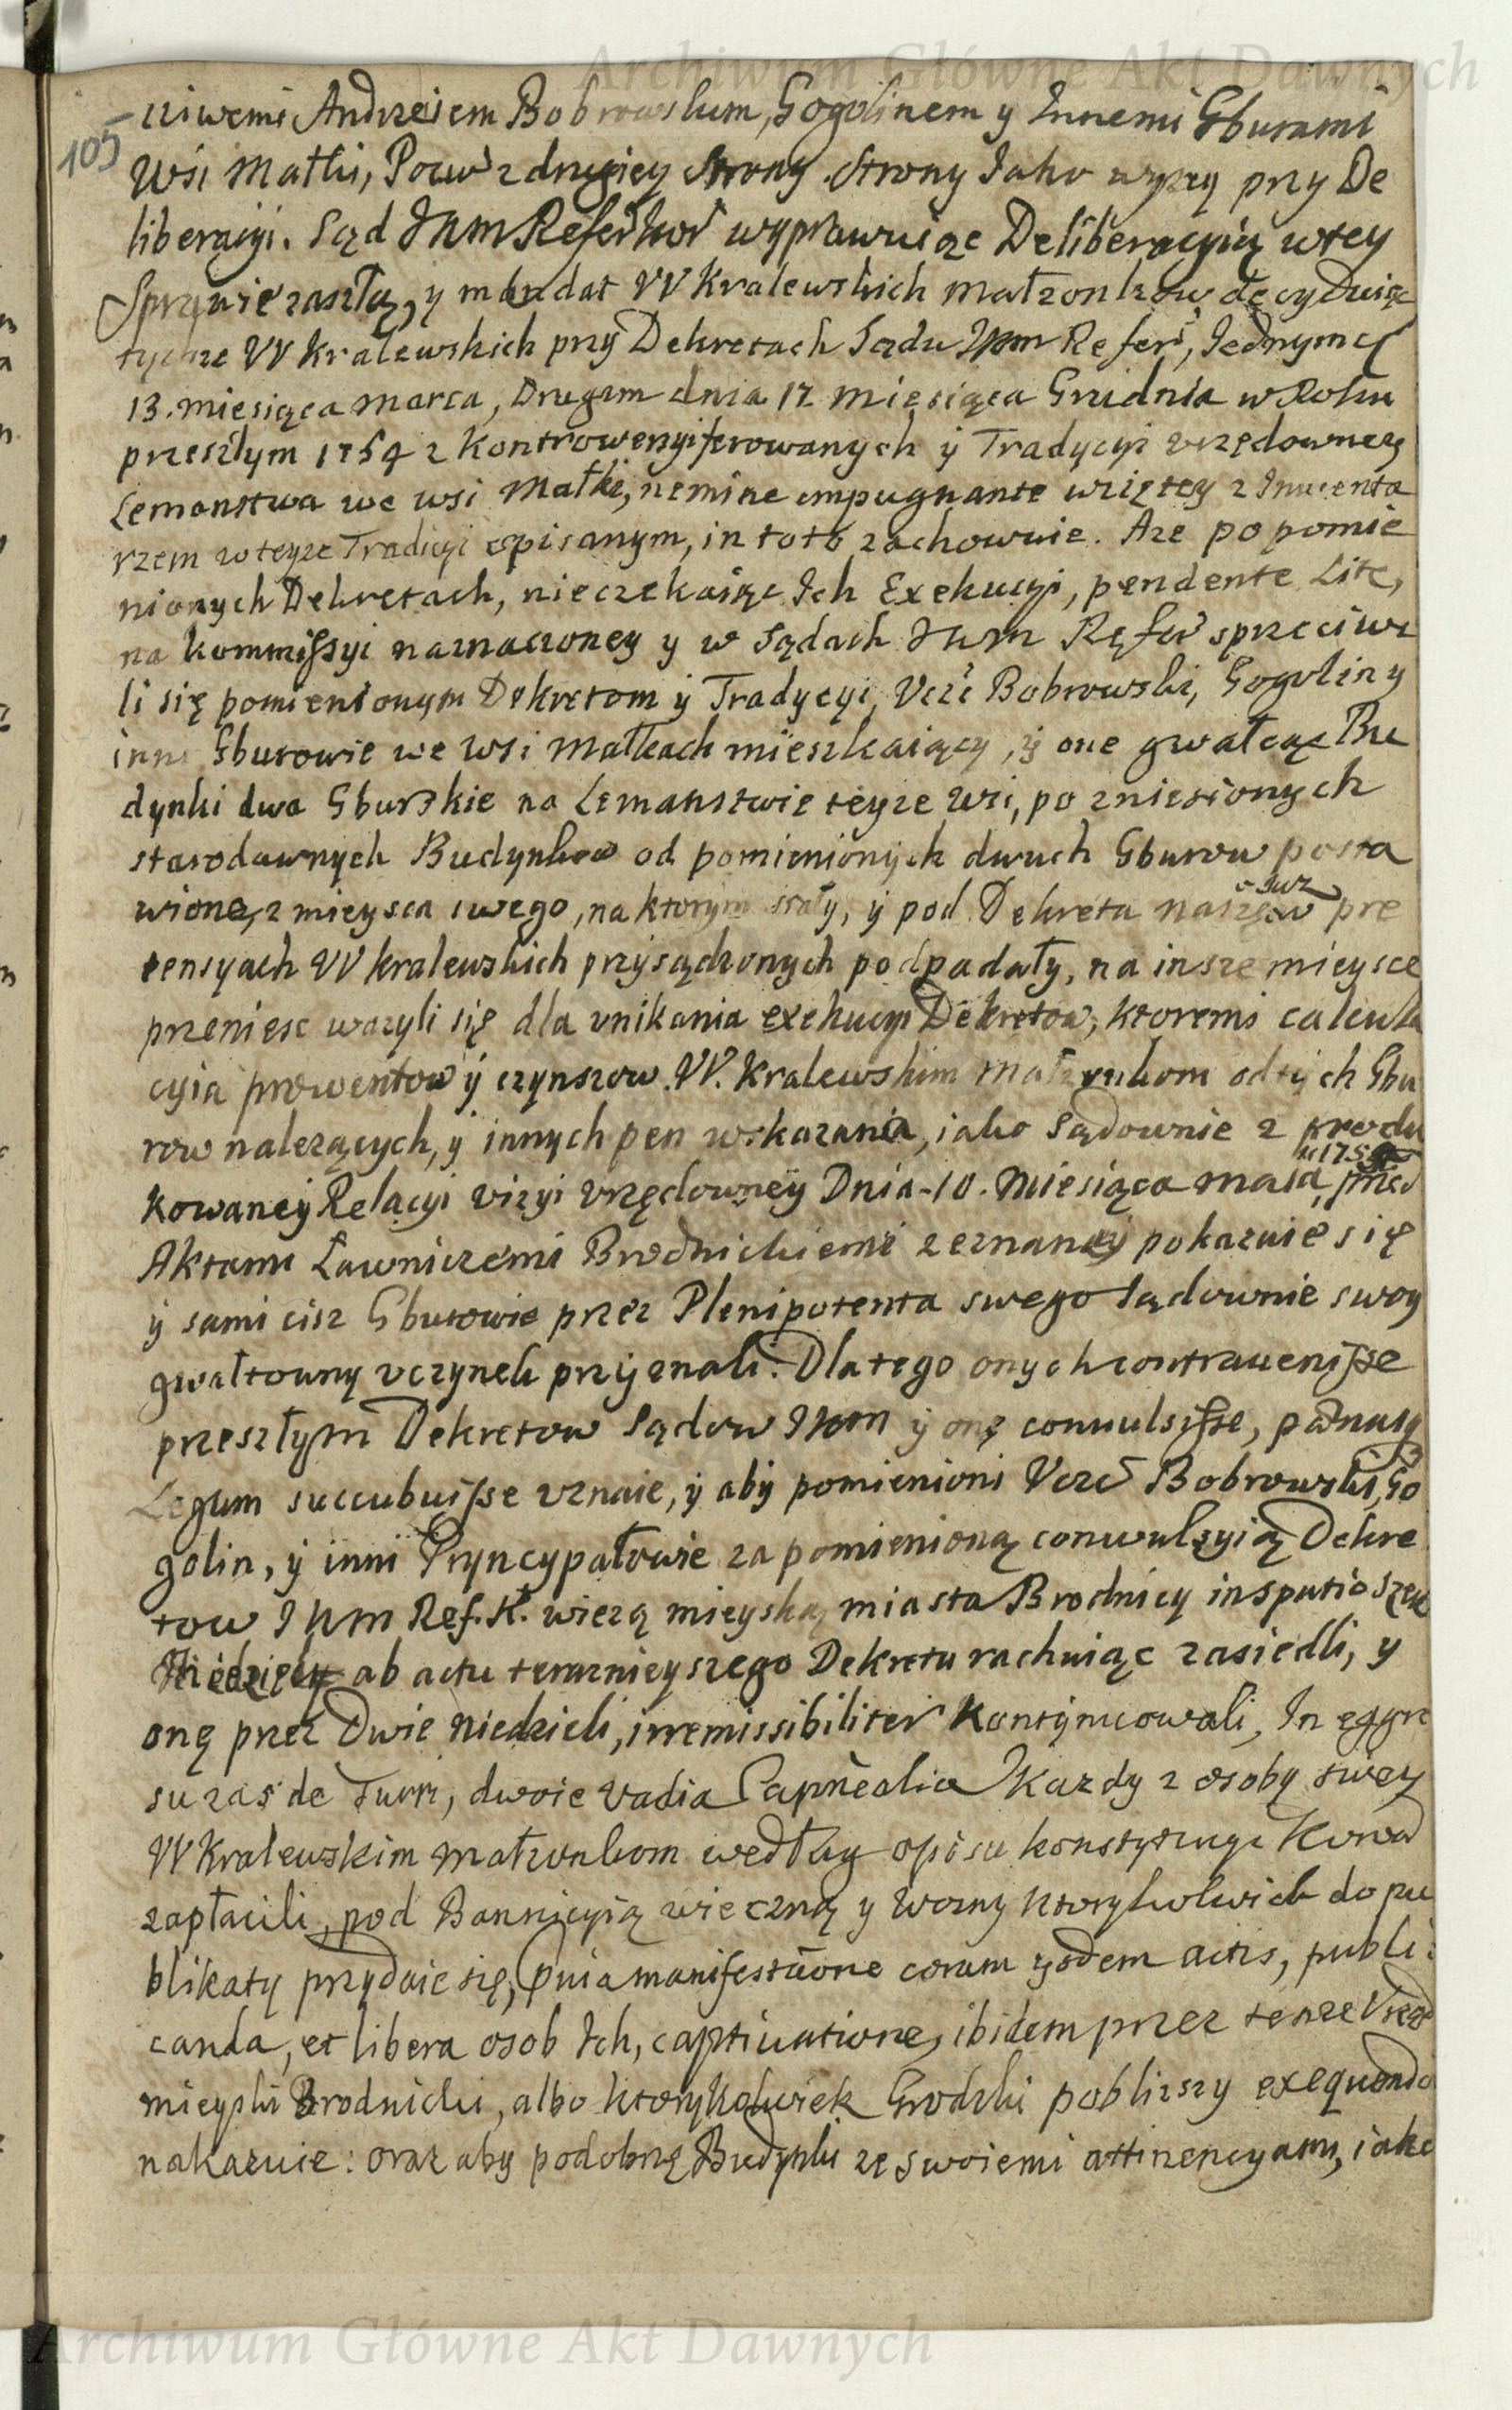 Archiwum Główne Akt Dawnych
105
cziwemi Andrzeiem Bobrowskim, Gogolinem y Innemi Gburami
Wsi Małki, Pozw z drugiey Strony Strony Iako wyzey przy De
liberacyi. Sąd IKM Refer Kor wyprawuiąc Deliberacyią w tey
Sprawie zaszłą, y mandat VV Kralewskich małzonkow decyduiąc
tychze VV Kralewskich przy Dekretach Sądu IKM Refer, Iednym
13. miesiąca marca, Drugim dnia 17 miesiąca Grudnia w Roku
przeszłym 1754 z Kontrowersyi ferowanych y Tradycyi vrzędowney
Lemanstwa we wsi Małki, nemine impugnante wziętey z Inwenta
rzem w teyze Tradicyi opisanym, in toto zachowuie. Aze po pomie
nionych Dekretach, nieczekaiąc Ich Exekucyi, pendente Lite,
na kommissyi naznaczoney y w Sądach IKM Refer sprzeciwi
li się pomienionym Dekretom y Tradycyi, Vczc Bobrowski, Gogolin y
inni Gburowie we Wsi Małkach mieszkaiący, y one gwałcąc Bu
dynki dwa Gburskie na Lemanstwie teyze Wsi, po zniesionych
starodawnych Budynkow od pomienionych dwuch Gburow posta
wione, z mieysca swego, na ktorym stały, y pod Dekreta naszę w pre
o Iuz
tensyach VV kralewskich przysądzonych podpadały, na insze mieysce
przeniesc wazyli się dla vnikania exekucyi Dekretow, ktoremi calcula
cyia prowentow y czynszow VV. Kralewskim Małzonkom od tych Gbu
row nalezących, y innych pen wskazania, iako Sądownie z produ
kowaney Relacyi vizyi vrzędowney Dnia 10. Miesiąca maia, przed
Aktami Ławniczemi Brodnickiemi zeznaney pokazuie się
y sami cisz Gburowie przez Plenipotenta swego Sądownie swoy
gwałtowny vczynek przyznali. Dlatego onych contravenisse
przeszłym Dekretow Sądow IKM y onę convulsisse, pænasq
Legum succubuisse vznaie, y aby pomienioni Vczc Bobrowski, Go
golin, y inni Pryncypałowie za pomienioną conwulsyią Dekre
tow IKM Ref. K. wiezą mieyską miasta Brodnicy in spatio Szesc
Niedziely ab actu teraznieyszego Dekretu rachuiąc zasiedli, y
onę przez Dwie Niedzieli, irremissibiliter Kontynuowali, In egre
su zas de Turri, dwoie Vadia Capnealia Kazdy z osoby swey
VV Kralewskim Małzonkom według opisu konstytucyi
zapłacili, pod Bannicyią wieczną y Wozny ktorykolwiek do pu
blikaty przydaie się, manifestãone coram ijsdem actis, publi
canda, et libera osob Ich, captivatione, ibidem przez tenze Vrząd
mieyski Brodnicki, albo ktorykolwiek Grodzki poblizszy exequendo
nakazuie: oraz aby podobnę Budynki ze swoiemi attinencyami, iako
Archiwum Główne Akt Dawnych